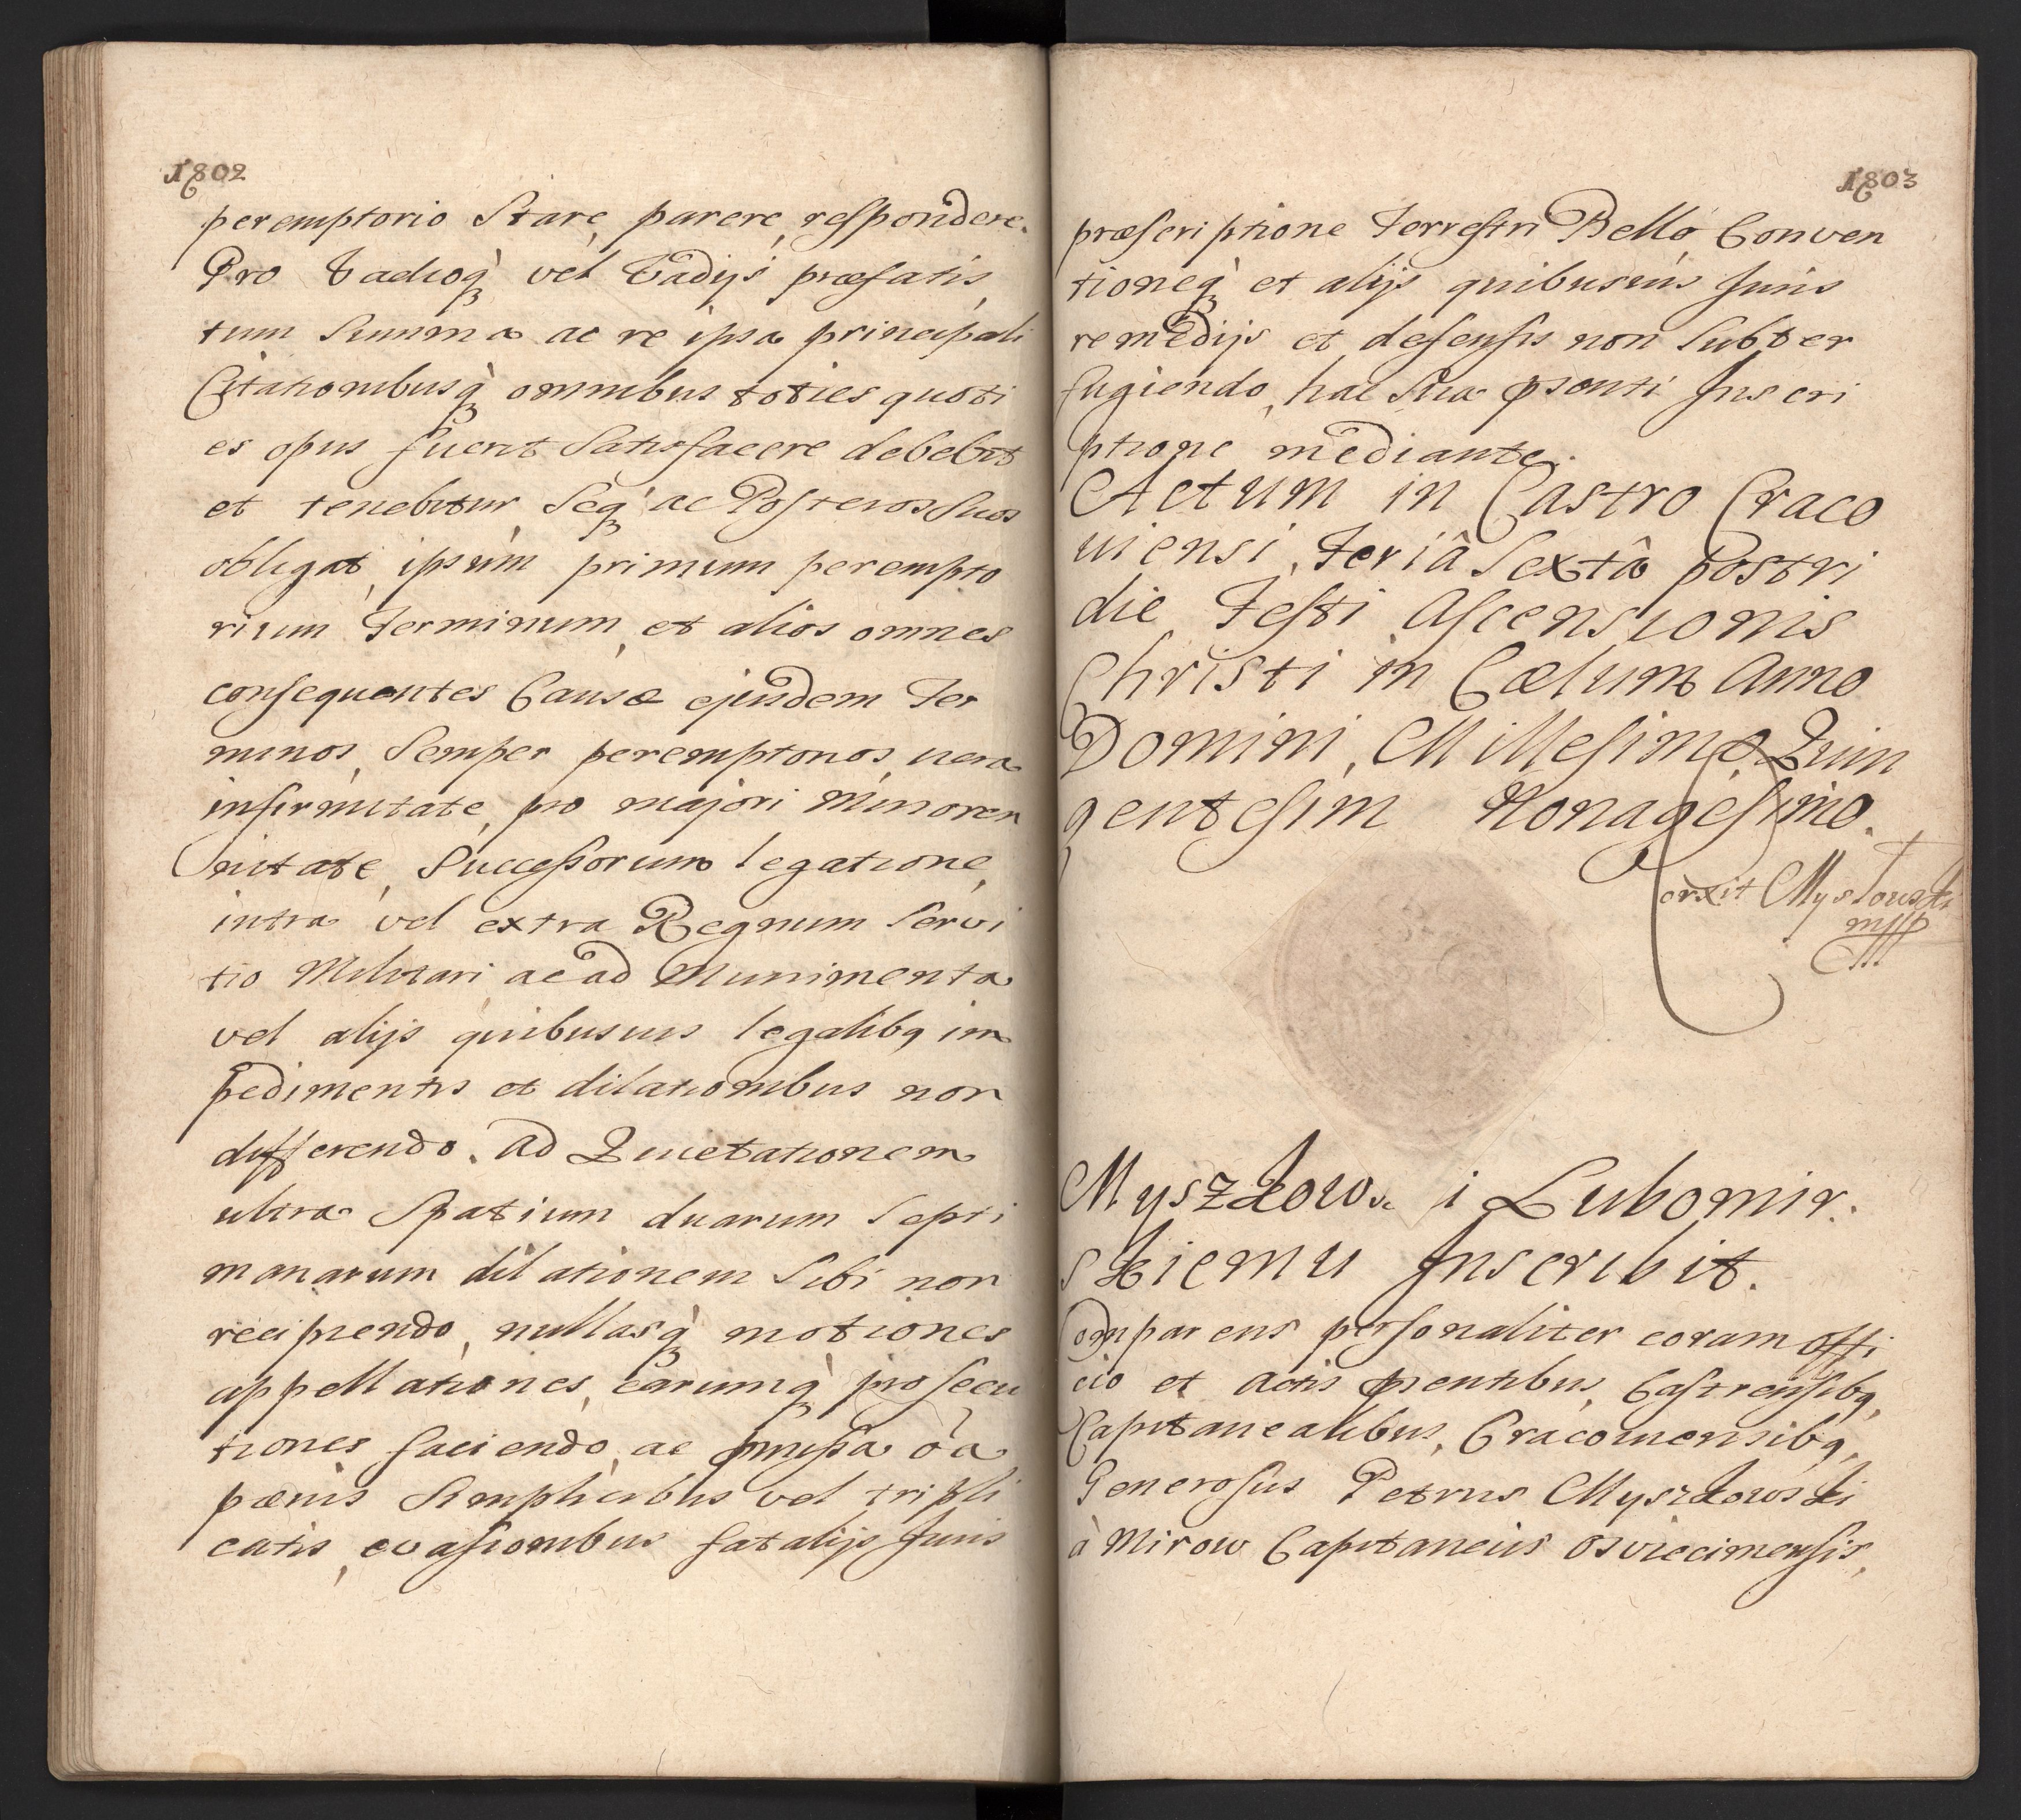 1802
peremptorio Stare, parere, respondere.
Pro Vadioq; vel Vadijs præfatis,
tum Summa ac re ipsa principali
Citationibusq; omnibus toties quoti
es opus fuerit Satisfacere debebit
et tenebitur, Seq; ac Posteros Suos
obligat, ipsum primum perempto
rium Terminum, et alios omnes
consequentes Causæ ejusdem Ter
minos, Semper peremptorios, vera
infirmitate, pro majori Minoren
nitate, Successorum legatione,
intra vel extra Regnum Servi
tio Militari, ac ad Munimenta
vel alijs quibusuis legalibq im
pedimentis et dilationibus non
differendo. Ad Quietationem
ultra Spatium duarum Septi
manarum dilationem Sibi non
recipiendo, nullasq; motiones
appellationes, earumq; prosecu
tiones faciendo, ac omissa oa
pænis Simplicibus vel tripli
catis, euasionibus fatalijs Juris
1803
præscriptione Terrestri Bello Conven
tioneq; et alijs quibusuis Juris
remedijs et defensis non Subter
fugiendo, hac Sua pšenti Inscri
ptione mediante.
Actum in Castro Craco
uiensi, Feriâ Sextâ Postri
die Festi Ascensionis
Christi in Cælum Anno
Domini, Millesimo, Quin
gentesim Nonagesimo.
Corxit Myslowski
mpp
Myszkows. i Lubomir.
skiemu Inscribit.
Comparens personaliter coram Offi
cio et Actis psentibus, Castrensibq,
Capitanealibus, Cracouiensibq,
Generosus Petrus Myszkowski
à Mirow Capitaneus Osviecimensis,